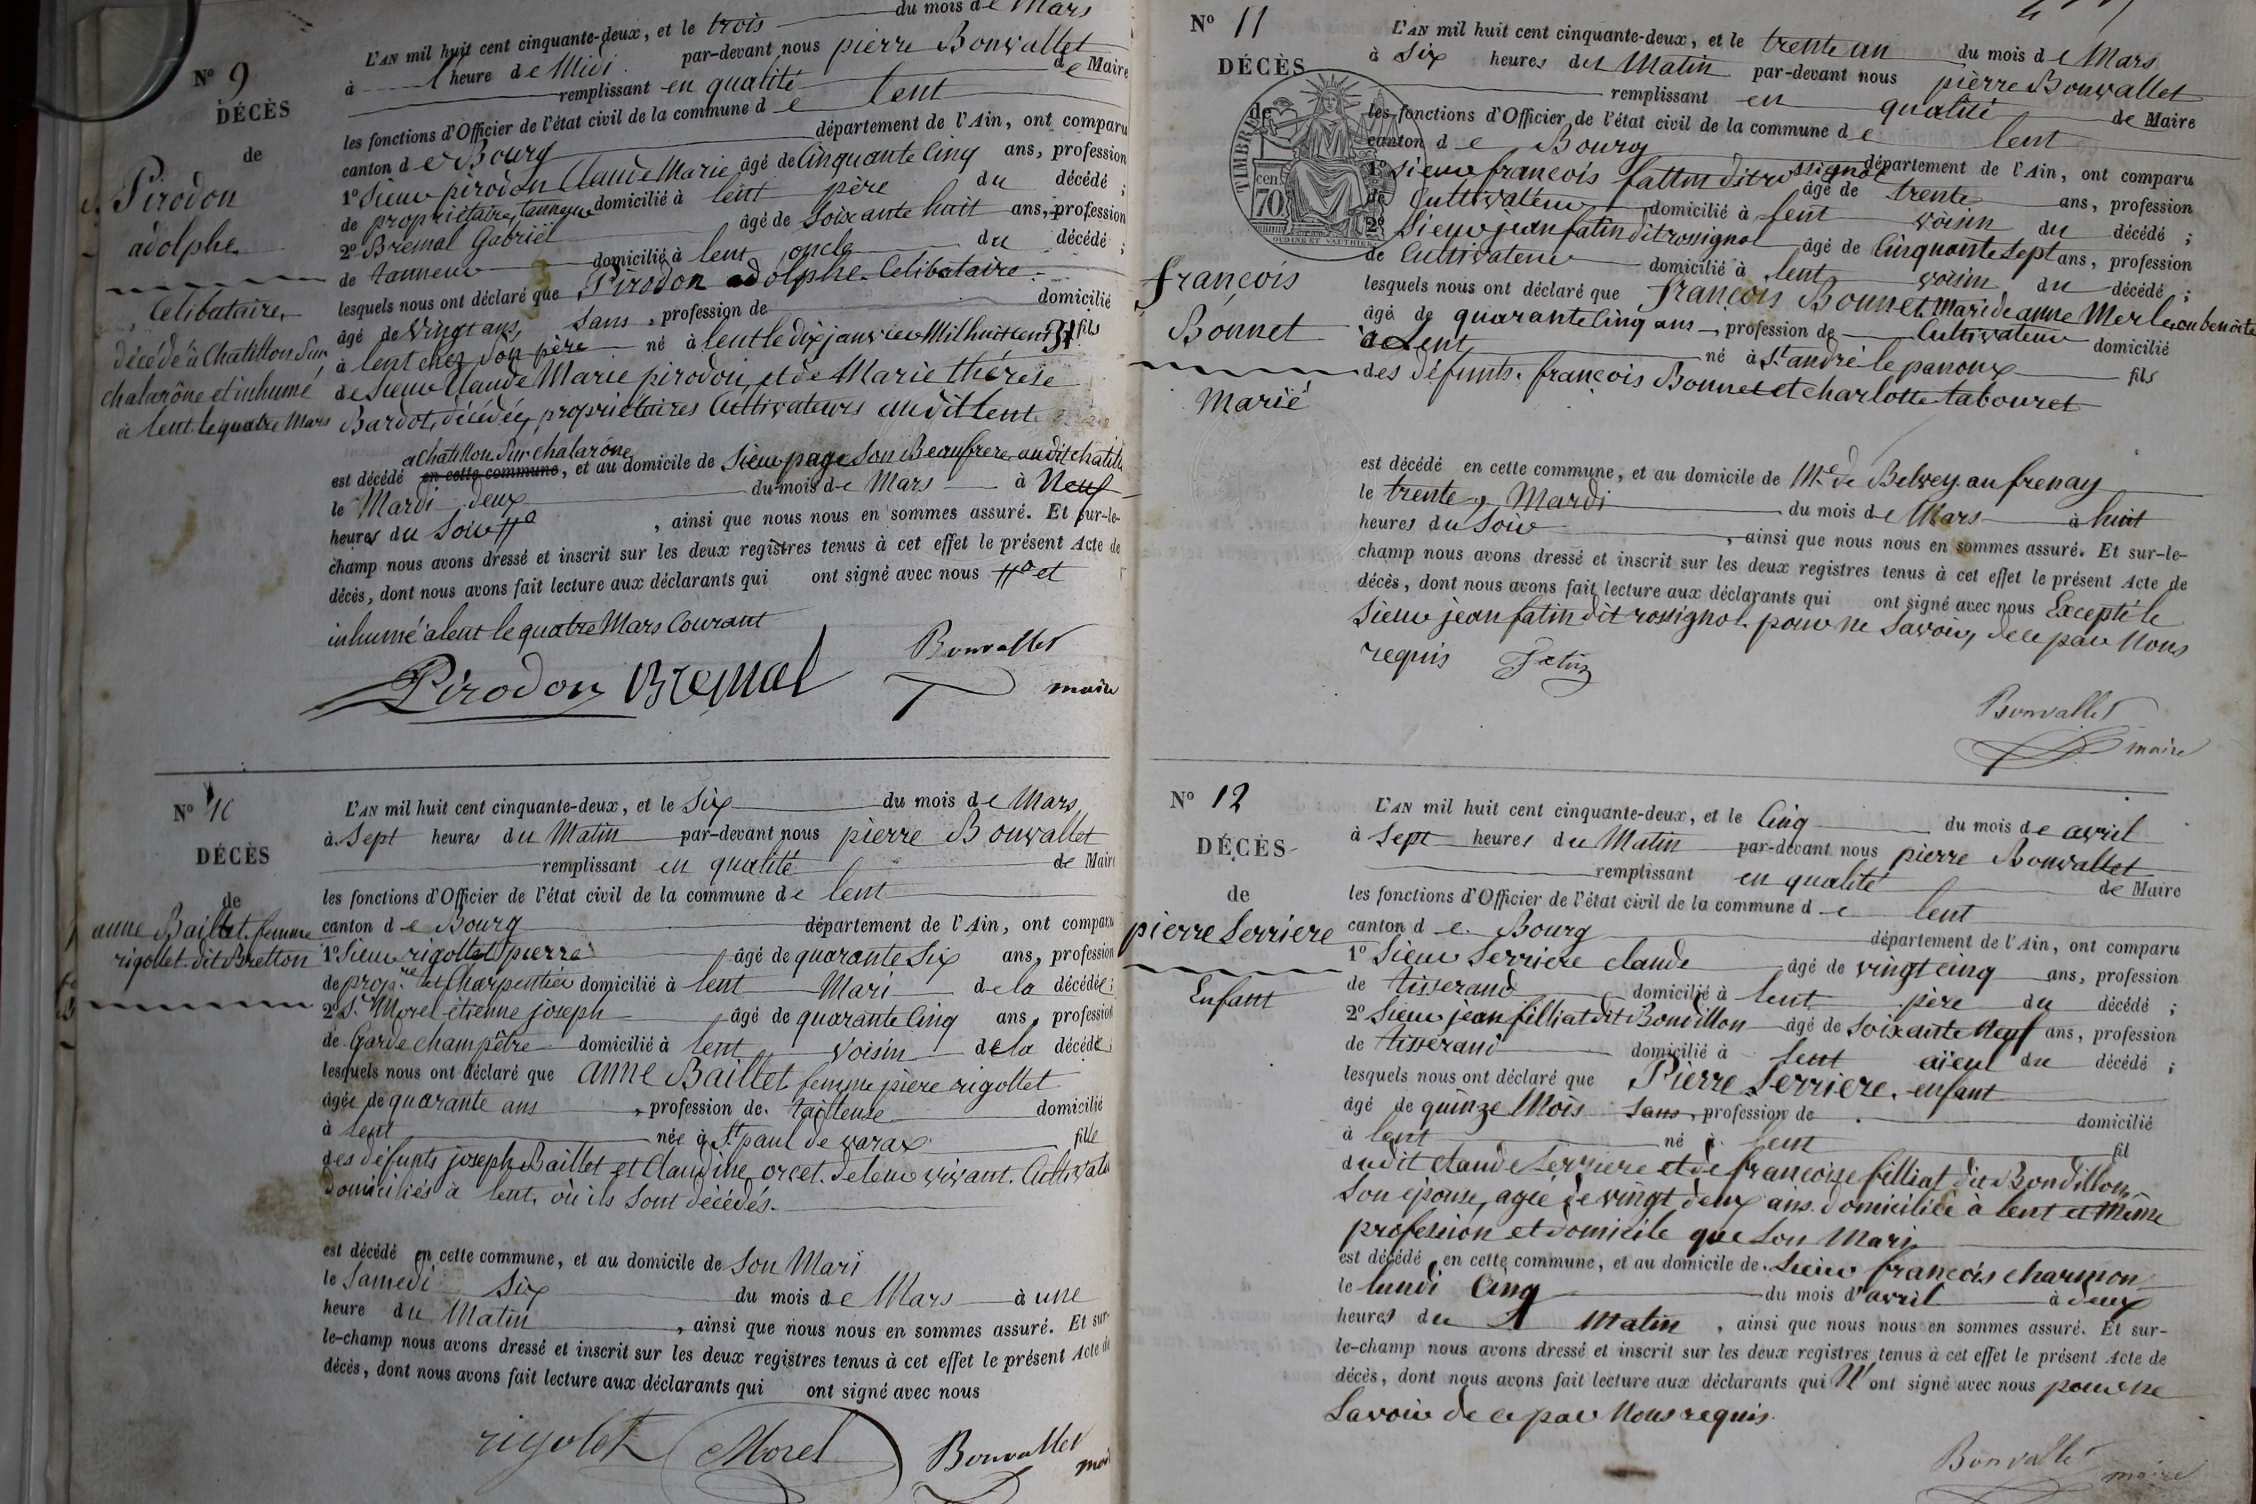 N° 9
DÉCÈS
de
Pirodon
adolphe
Celibataire
décédé à Chatillon Sur
chalarône et inhumé
à lent le quatre Mars
L'AN mil huit cent cinquante-deux, et le trois du mois de Mars
à heure de Midi par-devant nous pierre Bonvallet
remplissant en qualité de Maire
les fonctions d'Officier de l'état civil de la commune de lent
canton de Bourg département de l'Ain, ont comparu
1° Sieur pirodon Claude Marie âgé de Cinquante Cinq ans, profession
de propriétaire, tanneur domicilié à lent père du décédé ;
2° Bremal Gabriel âgé de Soixante huit ans, profession
de tanneur domicilié à lent oncle du décédé ;
lesquels nous ont déclaré que Pirodon adolphe. Celibataire
âgé de vingt ans, Sans, profession de domicilié
à lent chez Son père né à lent le dix janvier Mil huit cent 31 fils
de Sieur Claude Marie pirodon, et de Marie thérèse
Bardot, décédée, propriétaires Cultivateurs audit lent
a Chatillon Sur chalarône
est décédé en cette commune, et au domicile de Sieur page Son Beaufrere audit chatill
le Mardi deux du mois de Mars à Neuf
heures du Soir , ainsi que nous nous en sommes assuré. Et sur-le-
champ nous avons dressé et inscrit sur les deux registres tenus à cet effet le présent Acte de
décès, dont nous avons fait lecture aux déclarants qui ont signé avec nous et
inhumé a lent le quatre Mars Courant
Pirodon Bremal Bonvallet
maire
N° 10
DÉCÈS
de
anne Baillet femme
rigollet dit Bretton
L'AN mil huit cent cinquante-deux, et le Six du mois de Mars
à Sept heures du Matin par-devant nous pierre Bonvallet
remplissant en qualité de Maire
les fonctions d'Officier de l'état civil de la commune de lent
canton de Bourg département de l'Ain, ont comparu
1° Sieur rigollet pierre âgé de quarante Six ans, profession
de prop.re et Charpentier domicilié à lent Mari de la décédée ;
2° S.r Morel étienne joseph âgé de quarante Cinq ans, profession
de Garde Champêtre domicilié à lent Voisin de la décédé
lesquels nous ont déclaré que anne Baillet femme pierre rigollet
âgée de quarante ans, profession de tailleuse domicilié
à lent née à S.t paul de varax fille
des défunts joseph Baillet et Claudine orcet. de leur vivant. Cultivate
domiciliés à lent, où ils Sont décédés.
est décédé en cette commune, et au domicile de Son Mari
le Samedi Six du mois de Mars à une
heure du Matin , ainsi que nous nous en sommes assuré. Et sur-
le-champ nous avons dressé et inscrit sur les deux registres tenus à cet effet le présent Acte de
décès, dont nous avons fait lecture aux déclarants qui ont signé avec nous
rigolet Morel Bonvallet
N° 11
DÉCÈS
de
TIMBRE
70 cen.
françois
Bonnet
Marié
L'AN mil huit cent cinquante-deux, et le trente un du mois de Mars
à Six heures du Matin par-devant nous pierre Bonvallet
remplissant en qualité de Maire
les fonctions d'Officier de l'état civil de la commune de lent
canton de Bourg département de l'Ain, ont comparu
1° Sieur francois fattin dit rossignol âgé de trente ans, profession
de Cultivateur domicilié à lent voisin du décédé ;
2° Sieur jean fatin dit rossignol âgé de Cinquante Sept ans, profession
de Cultivateur domicilié à lent voisin du décédé ;
lesquels nous ont déclaré que françois Bonnet, Mari de anne Merle, ou benoite
âgé de quarante Cinq ans, profession de Cultivateur domicilié
à Lent né à S.t andré le panoux fils
des défunts. françois Bonnet et charlotte tabouret
est décédé en cette commune, et au domicile de M.r de Belvey au frenay
le trente, Mardi du mois de Mars à huit
heures du Soir , ainsi que nous nous en sommes assuré. Et sur-le-
champ nous avons dressé et inscrit sur les deux registres tenus à cet effet le présent Acte de
décès, dont nous avons fait lecture aux déclarants qui ont signé avec nous Excepté le
Sieur jean fatin dit rossignol. pour ne Savoir, de ce par Nous
requis
Bonvallet
maire
N° 12
DÉCÈS
de
pierre Serriere
Enfant
L'AN mil huit cent cinquante-deux, et le Cinq du mois de avril
à Sept heures du Matin par-devant nous pierre Bonvallet
remplissant en qualité de Maire
les fonctions d'Officier de l'état civil de la commune de lent
canton de Bourg département de l'Ain, ont comparu
1° Sieur Serriere claude âgé de vingt cinq ans, profession
de tisserand domicilié à lent père du décédé ;
2° Sieur jean filliat dit Bondillon âgé de Soixante Neuf ans, profession
de tisserand domicilié à lent aïeul du décédé ;
lesquels nous ont déclaré que Pierre Serriere. enfant
âgé de quinze Mois Sans, profession de domicilié
à lent né à lent fil
dudit claude Serriere et de francoise filliat dit Bondillon,
Son épouse, agée de vingt deux ans. domiciliée à lent et Même
profession et domicile que Son Mari
est décédé, en cette commune, et au domicile de Sieur françois charmon
le lundi Cinq du mois d'avril à deux
heures du Matin , ainsi que nous nous en sommes assuré. Et sur-
le-champ nous avons dressé et inscrit sur les deux registres tenus à cet effet le présent Acte de
décès, dont nous avons fait lecture aux déclarants qui N'ont signé avec nous pour ne
Savoir de ce par Nous requis.
Bonvallet
maire